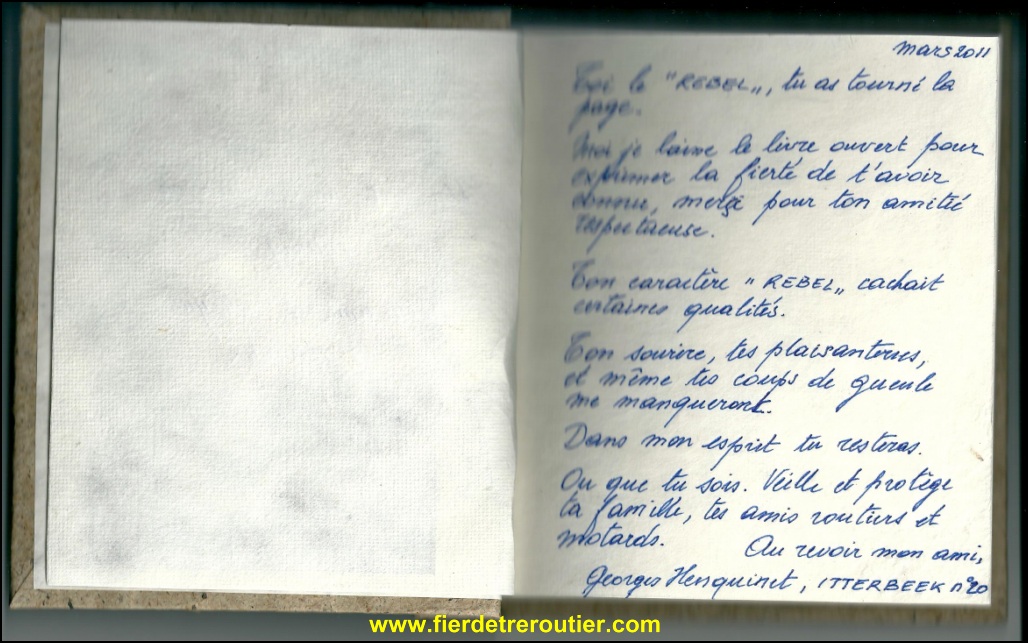 mars 2011
Toi le "REBEL", tu as tourné la
page.
Moi je laisse le livre ouvert pour
exprimer la fierté de t'avoir
connu, merçi pour ton amitié
respectueuse.
Ton caractère "REBEL" cachait
certaines qualités.
Ton sourire, tes plaisanteries,
et même tes coups de gueule
me manqueront.
Dans mon esprit tu resteras.
Ou que tu sois. Veille et protège
ta famille, tes amis routiers et
motards.
Au revoir mon ami,
Georges Henquinet, ITTERBEEK n°20
www.fierdetreroutier.com